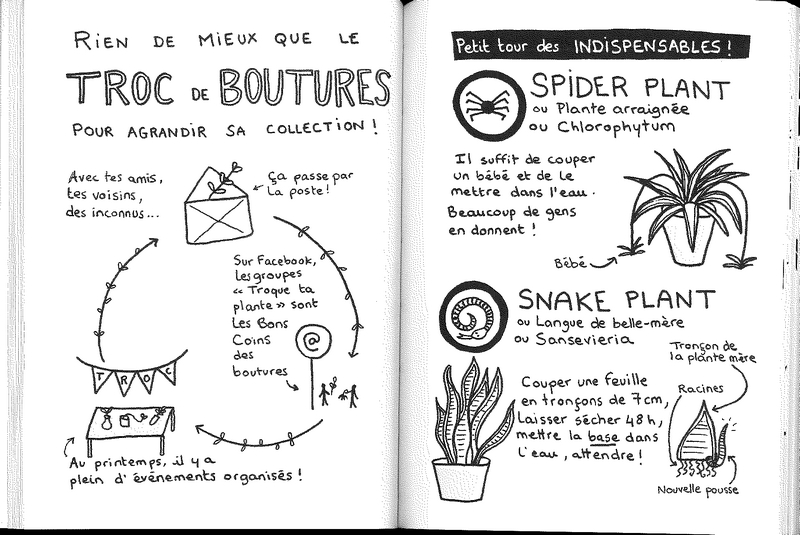 RIEN DE MIEUX QUE LE
TROC DE BOUTURES
POUR AGRANDIR SA COLLECTION !
Avec tes amis,
tes voisins,
des inconnus...
Ça passe par
la poste !
Sur Facebook,
les groupes
« Troque ta
plante » sont
les Bons
Coins
des
boutures
@
TROC
Au printemps, il y a
plein d'événements organisés !
Petit tour des INDISPENSABLES !
SPIDER PLANT
ou Plante arraignée
ou Chlorophytum
Il suffit de couper
un bébé et de le
mettre dans l'eau.
Beaucoup de gens
en donnent !
Bébé
SNAKE PLANT
ou Langue de belle-mère
ou Sansevieria
Tronçon de
la plante mère
Couper une feuille
en tronçons de 7cm,
laisser sécher 48h,
mettre la base dans
l'eau, attendre !
Racines
Nouvelle pousse